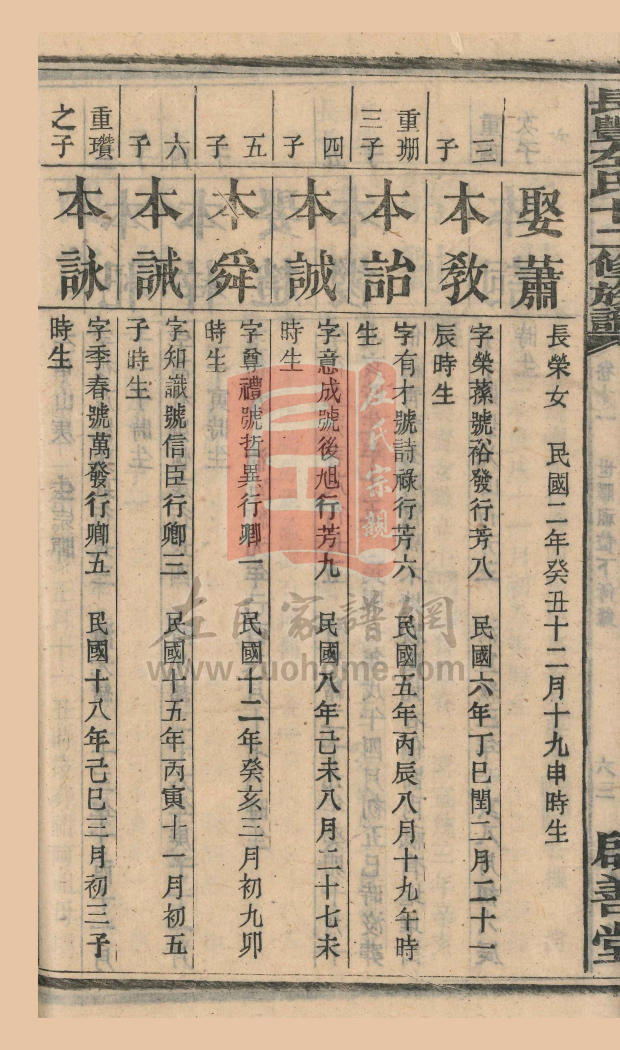 長豐左氏十二修族譜
啟善堂
娶蕭
長榮女　民國二年癸丑十二月十九申時生
三子
本敎
字榮蓀號裕發行芳八　民國六年丁巳閏二月二十一
辰時生
重珊三子
本詒
字有才號詩祿行芳六　民國五年丙辰八月十九午時
生
四子
本誠
字意成號後旭行芳九　民國八年己未八月二十七未
時生
五子
本舜
字尊禮號哲異行卿一　民國十二年癸亥三月初九卯
時生
六子
本誡
字知識號信臣行卿三　民國十五年丙寅十一月初五
子時生
重瓚之子
本詠
字季春號萬發行卿五　民國十八年己巳三月初三子
時生
左氏宗親
左氏家譜網
www.zuohome.com